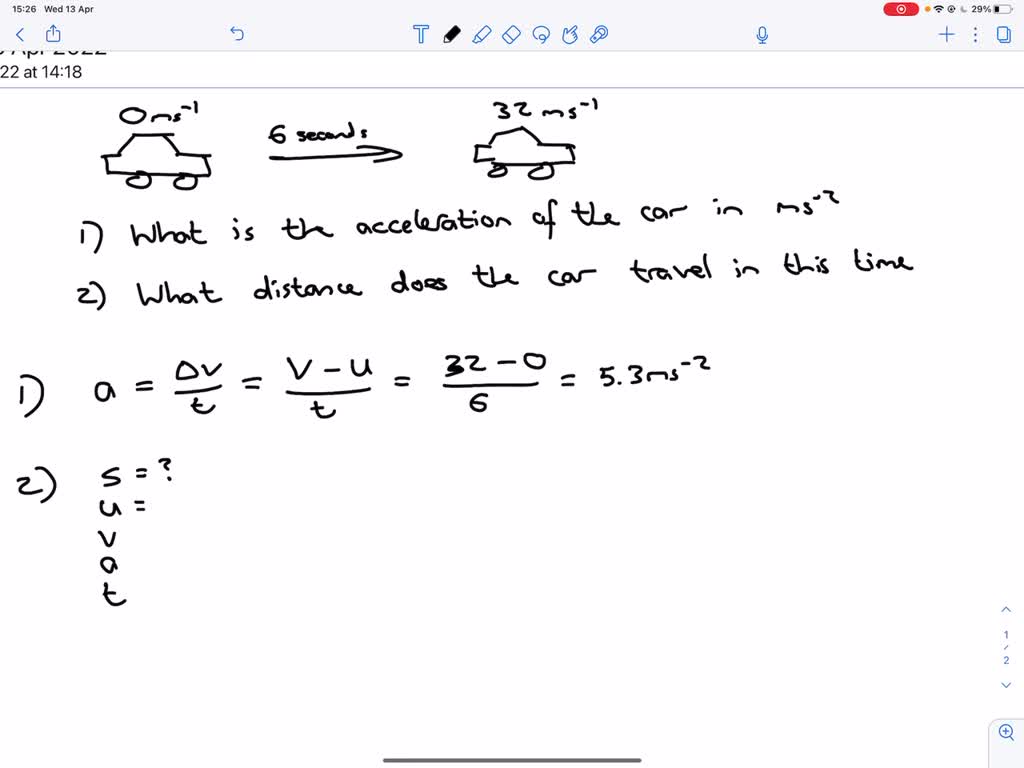 15:26 Wed 13 Apr 29%
Apr 2022
22 at 14:18
0ms⁻¹ 6 seconds 32 ms⁻¹
1) What is the acceleration of the car in ms⁻²
2) What distance does the car travel in this time
1) a = Δv/t = V-u/t = 32-0/6 = 5.3ms⁻²
2) s = ?
u =
v
a
t
1
/
2